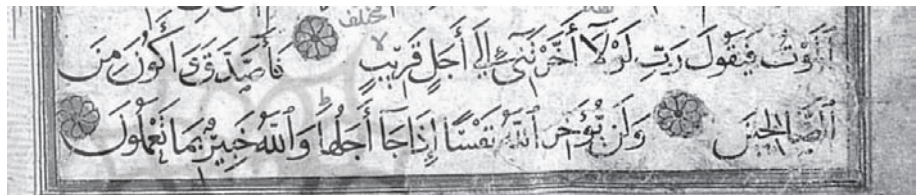 مختلف
ٱلْمَوْتُ فَيَقُولَ رَبِّ لَوْلَآ أَخَّرْتَنِىٓ إِلَىٰٓ أَجَلٍ قَرِيبٍ فَأَصَّدَّقَ وَأَكُونَ مِنَ
ٱلصَّٰلِحِينَ وَلَن يُؤَخِّرَ ٱللَّهُ نَفْسًا إِذَا جَآءَ أَجَلُهَا وَٱللَّهُ خَبِيرٌۢ بِمَا تَعْمَلُونَ